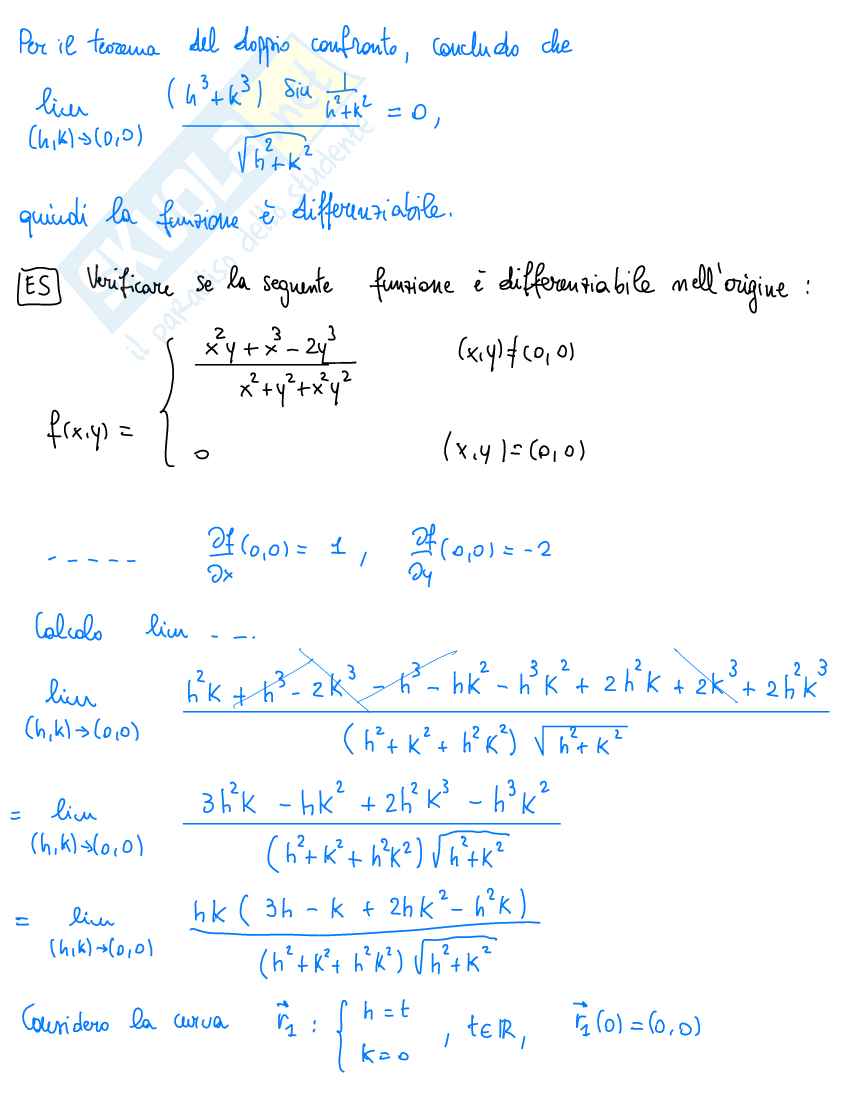 Per il teorema del doppio confronto, concludo che
lim (h,k)→(0,0) (h³+k³) sin 1/(h²+k²) / √(h²+k²) = 0,
quindi la funzione è differenziabile.
ES Verificare se la seguente funzione è differenziabile nell'origine :
f(x,y) = { (x²y + x³ - 2y³)/(x²+y²+x²y²) (x,y)≠(0,0)
0 (x,y)=(0,0)
- - - - - ∂f/∂x (0,0) = 1 , ∂f/∂y (0,0) = -2
Calcolo lim - - -.
lim (h,k)→(0,0) (h²k + h³ - 2k³ - h³ - hk² - h³k² + 2h²k + 2k³ + 2h²k³) / ((h²+k²+h²k²) √(h²+k²))
= lim (h,k)→(0,0) (3h²k - hk² + 2h²k³ - h³k²) / ((h²+k²+h²k²) √(h²+k²))
= lim (h,k)→(0,0) hk ( 3h - k + 2hk² - h²k) / ((h²+k²+h²k²) √(h²+k²))
Considero la curva r⃗₁ : { h = t
k = 0 , t∈ℝ, r⃗₁(0) = (0,0)
SKUOLA.net
il paradiso dello studente